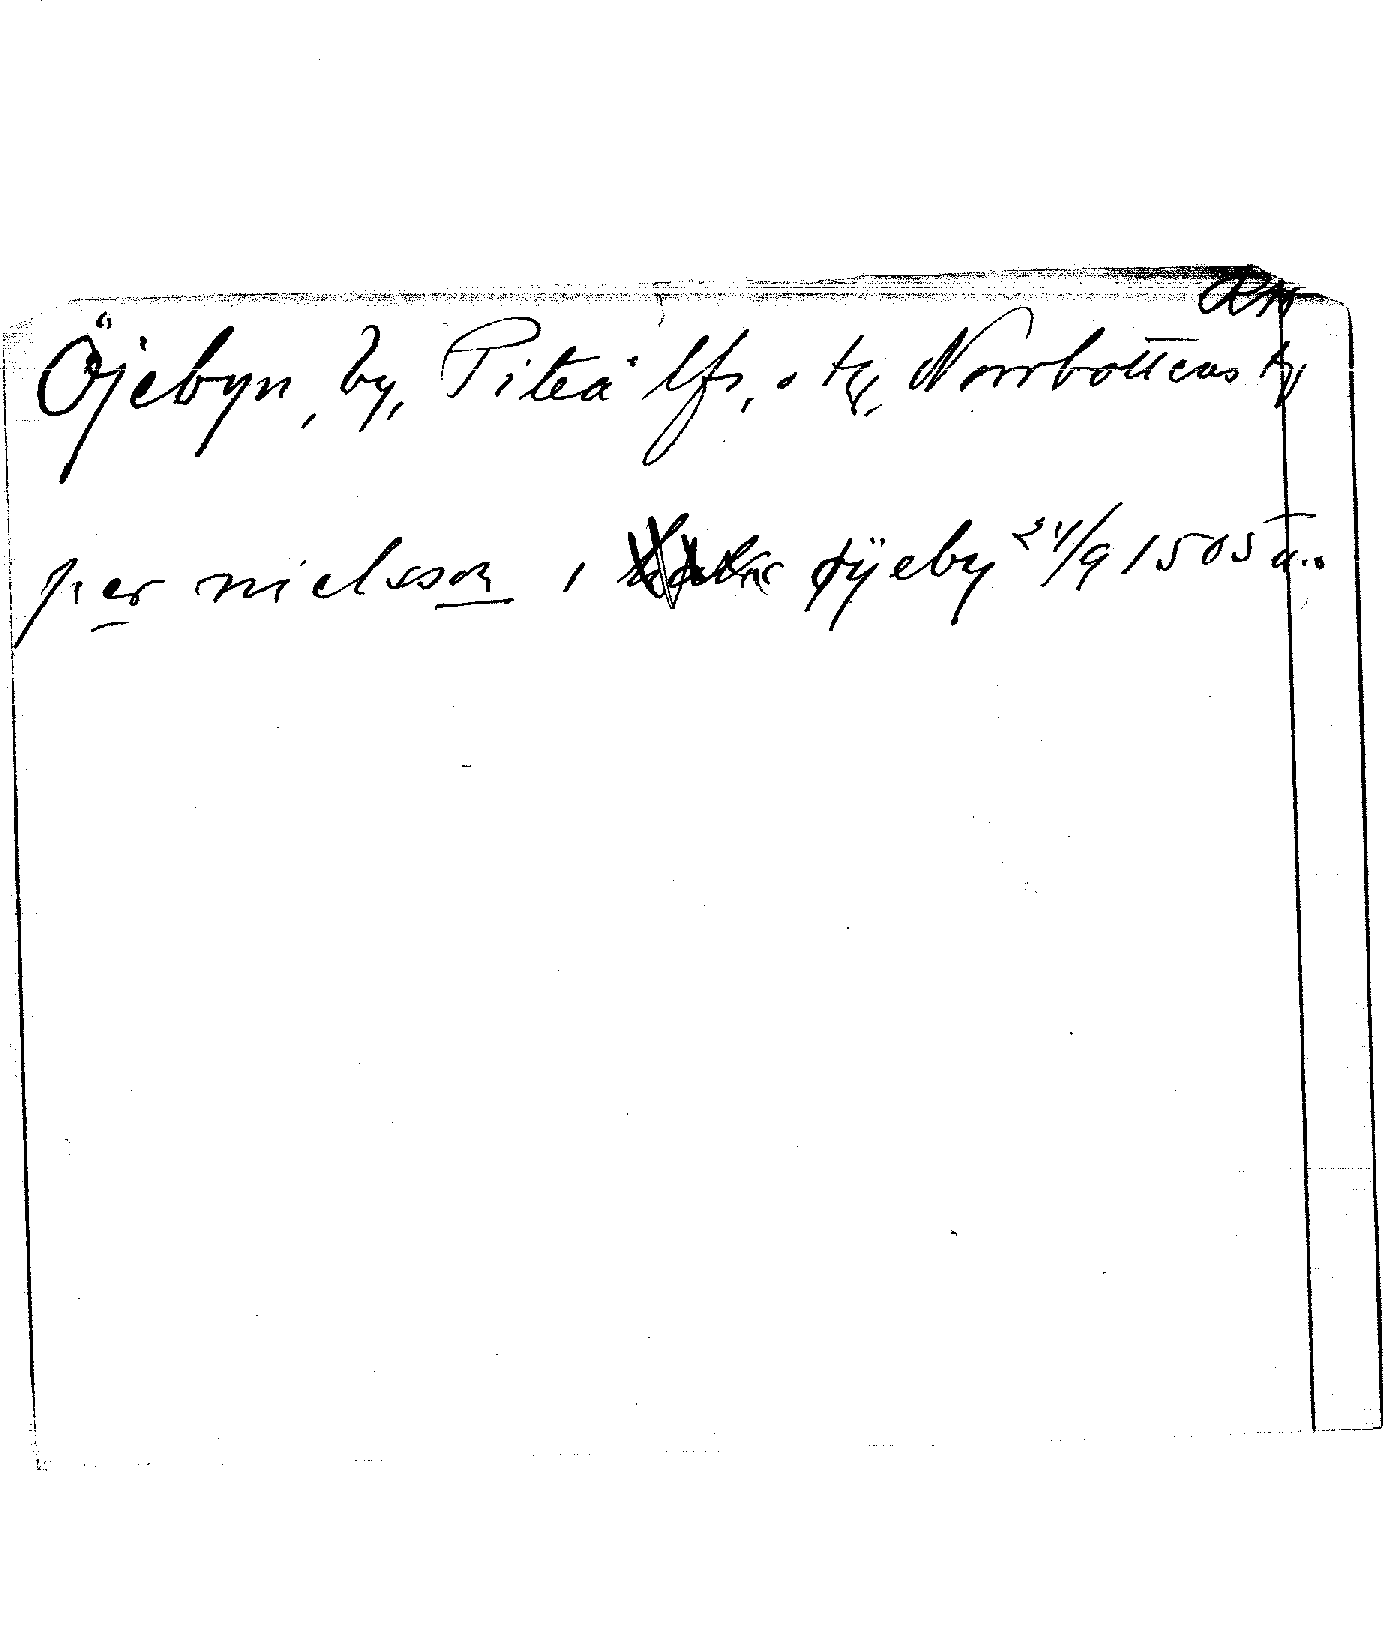 Öjebyn, by, Piteå lfs. o tg, Norrbottens
per nielsson i øÿeby 24/9 1505